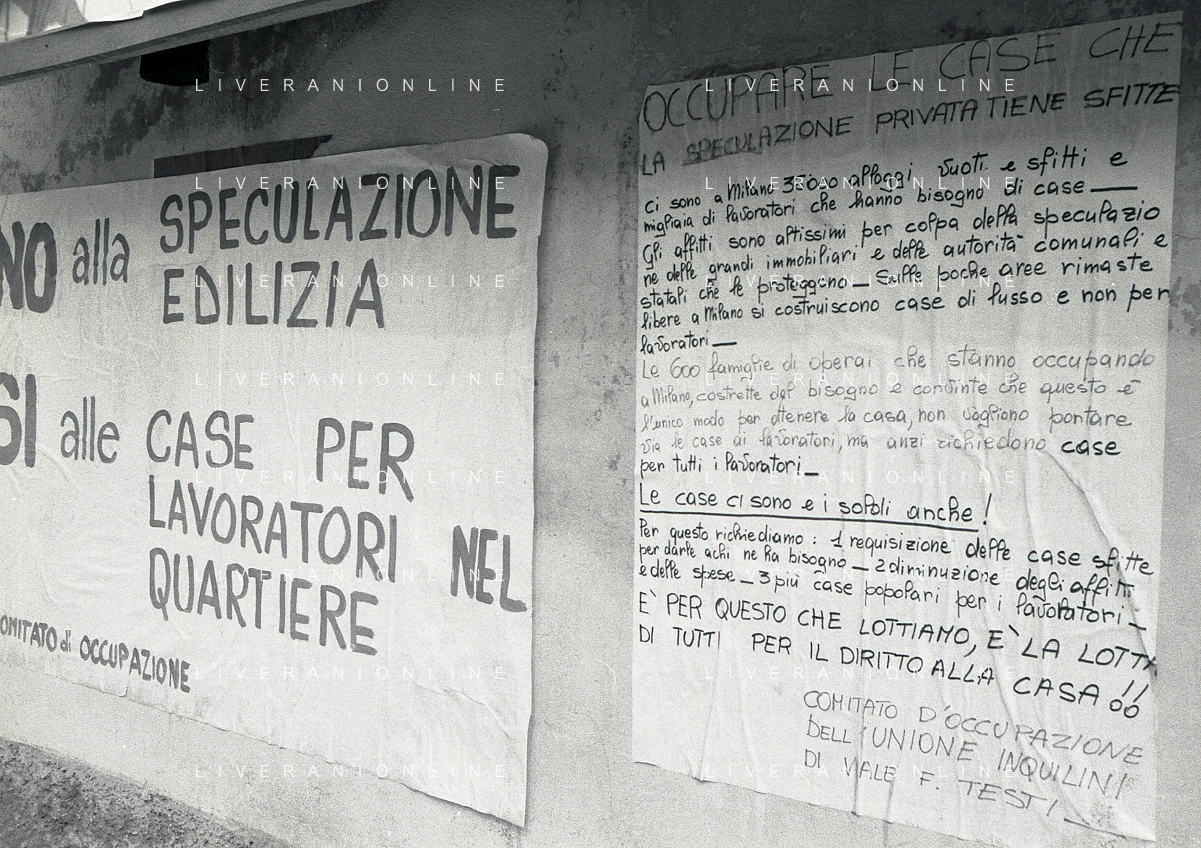 NO alla SPECULAZIONE
EDILIZIA
SI alle CASE PER
LAVORATORI NEL
QUARTIERE
COMITATO di OCCUPAZIONE
OCCUPARE LE CASE CHE
LA SPECULAZIONE PRIVATA TIENE SFITTE
ci sono a Milano alloggi vuoti e sfitti e
migliaia di lavoratori che hanno bisogno di case —
Gli affitti sono altissimi per colpa della speculazio
ne delle grandi immobiliari e delle autorità comunali e
statali che le proteggono — Sulle poche aree rimaste
libere a Milano si costruiscono case di lusso e non per
lavoratori —
Le 600 famiglie di operai che stanno occupando
a Milano, costrette dal bisogno e convinte che questo è
l'unico modo per ottenere la casa, non vogliono portare
via le case ai lavoratori, ma anzi richiedono case
per tutti i lavoratori —
Le case ci sono e i soldi anche!
Per questo richiediamo: 1 requisizione delle case sfitte
per darle a chi ne ha bisogno — 2 diminuzione degli affitti
e delle spese — 3 più case popolari per i lavoratori —
E' PER QUESTO CHE LOTTIAMO, E' LA LOTTA
DI TUTTI PER IL DIRITTO ALLA CASA!!
COMITATO D'OCCUPAZIONE
DELL'UNIONE INQUILINI
DI VIALE F. TESTI —
LIVERANIONLINE